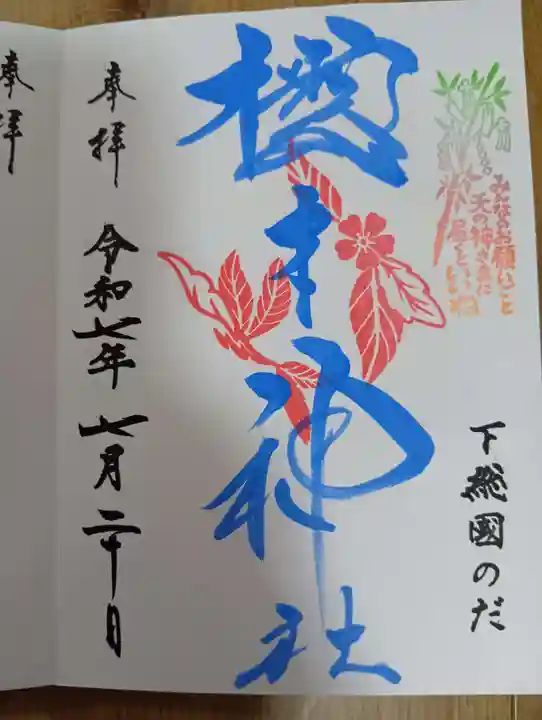 みんなのお願いごと
天の神さまに
届くといいね
下総國のだ
櫻木神社
奉拝
令和七年 七月 二十日
奉拝